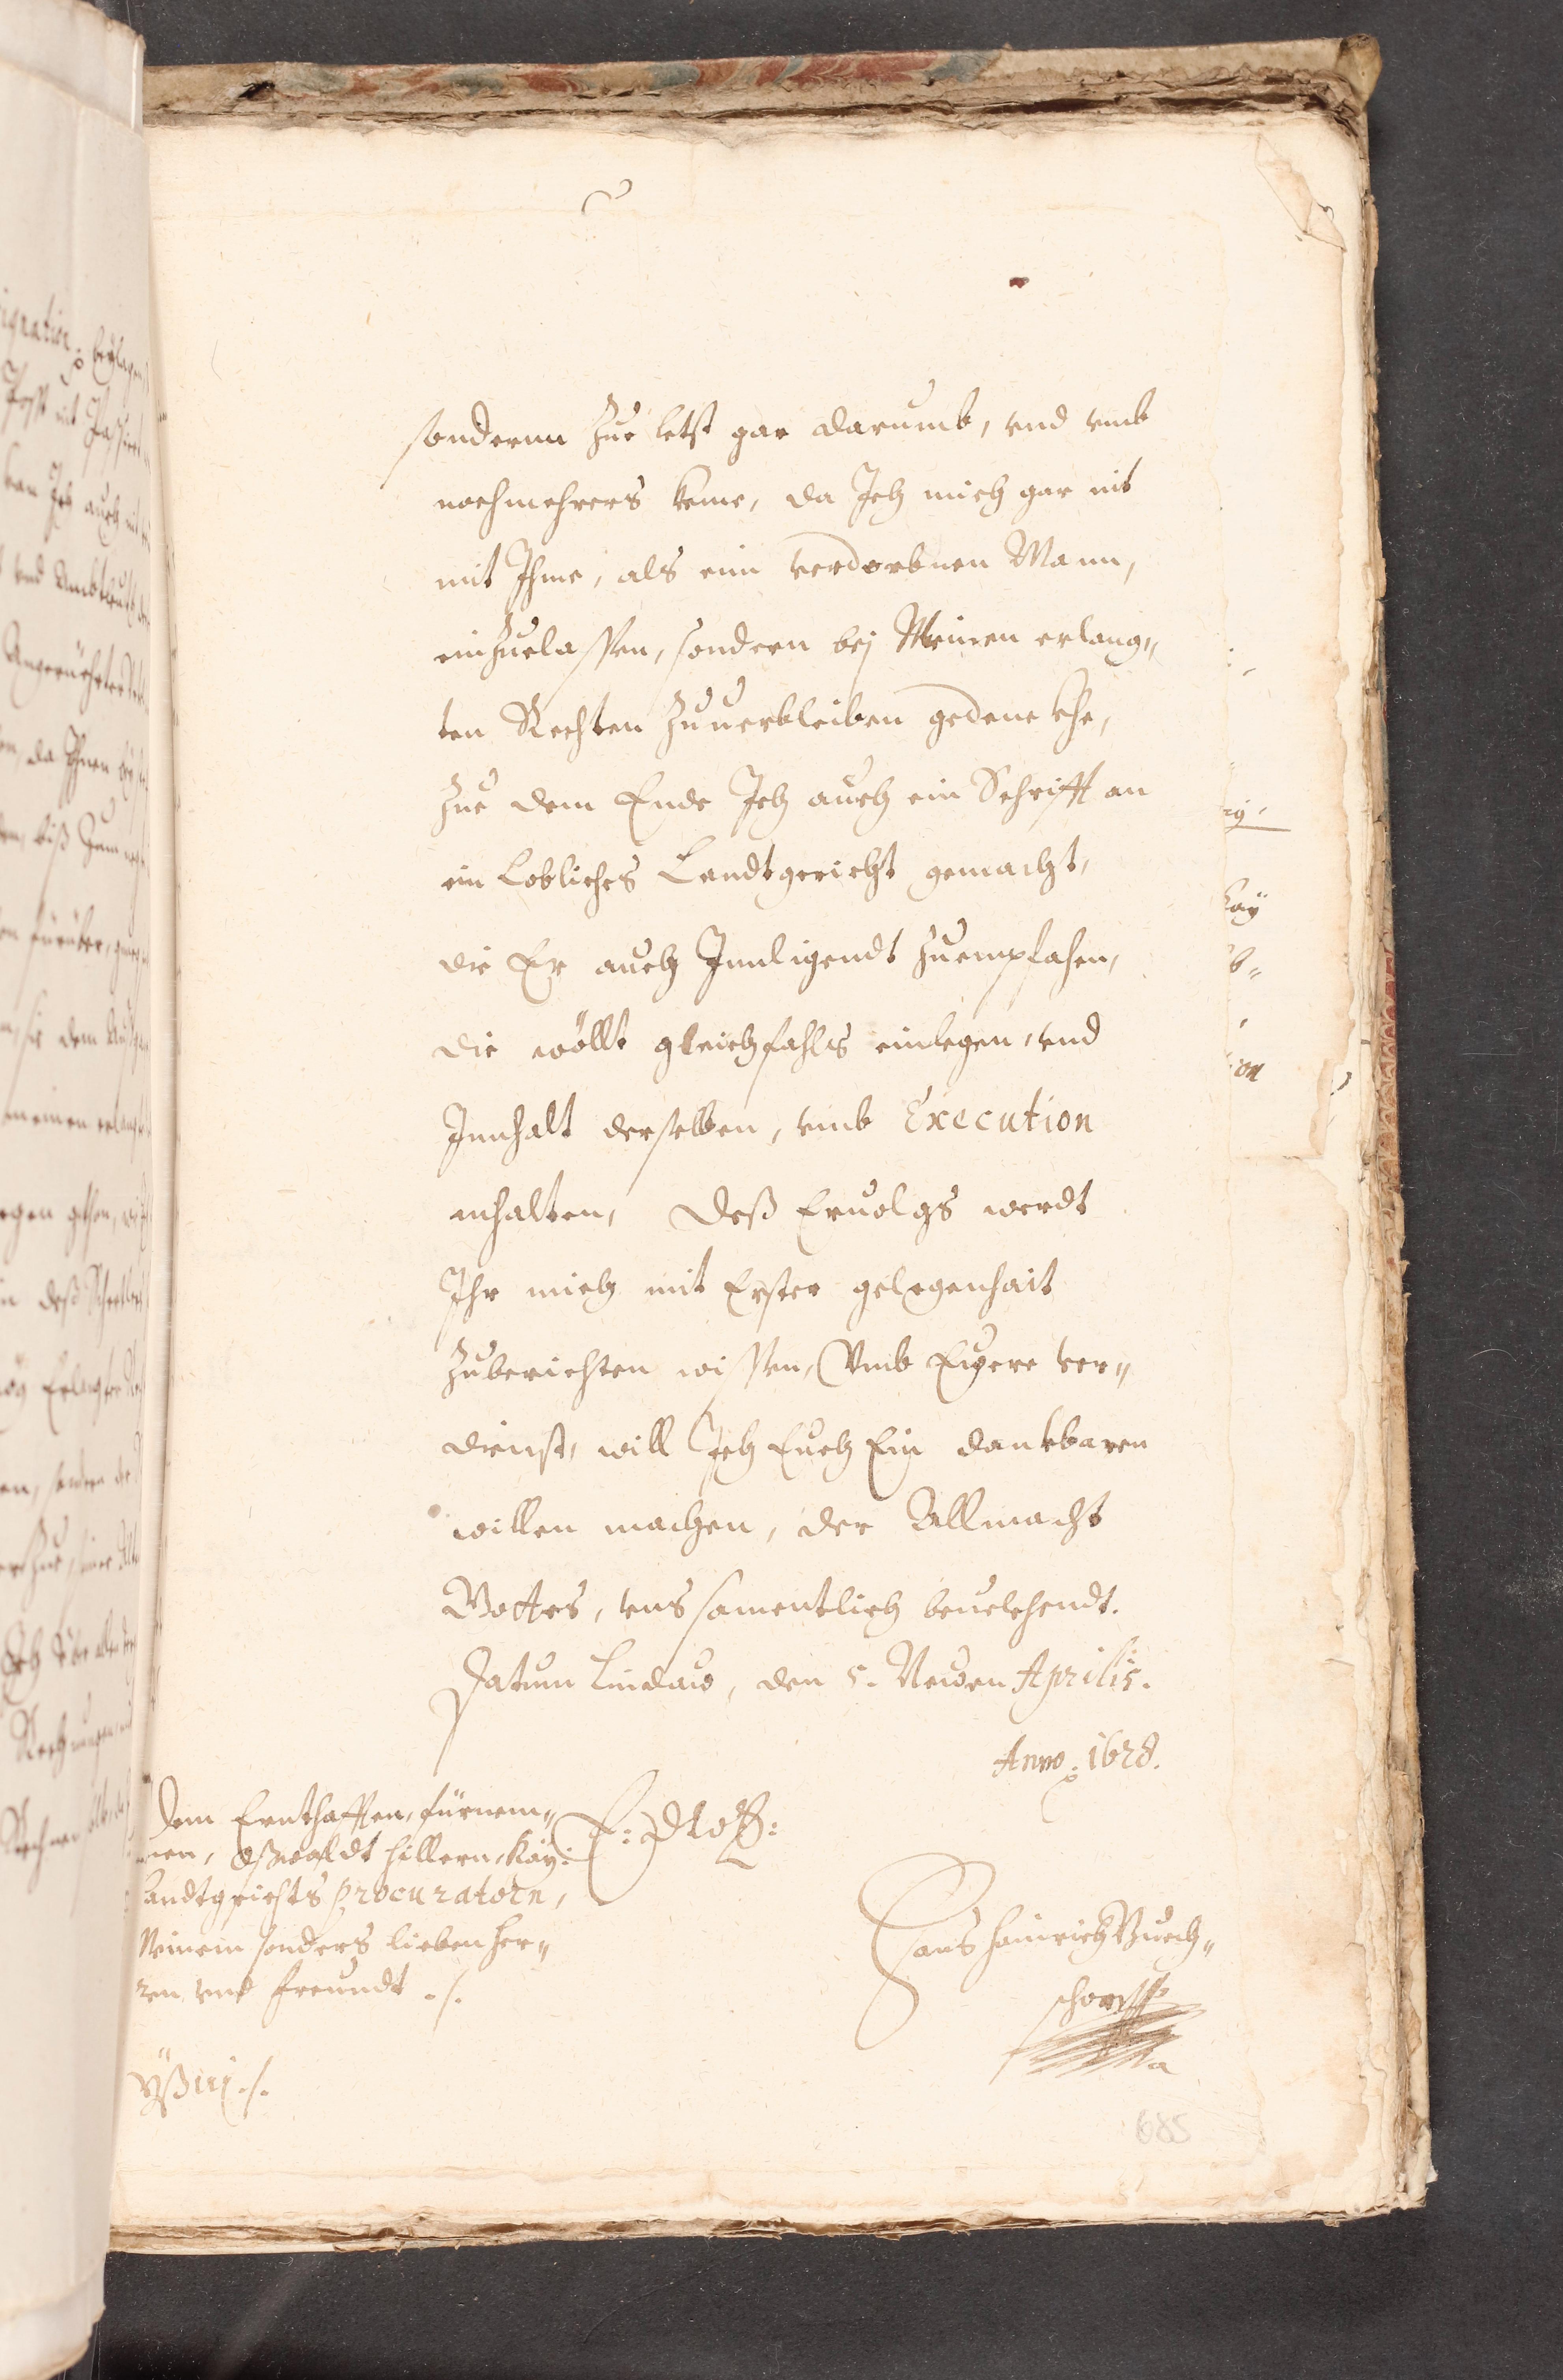 sondernn Zue letst gar darumb, vnd vmb
nochmehrers keme, da Ich mich gar nit
mit Ihme, als ein verdorbnen Mann,
einZuelassen, sondern bej Meinen erlang„
ten Rechten Zuuerbleiben gedenckhe,
Zue dem Ende Ich auch ein Schrifft an
ein Lobliches Landtgericht gemacht,
die Er auch Innligendt Zuempfahen,
die wöllt gleichfahls einlegen, vnd
Innhalt derselben, vmb Execution
anhalten, deß Ervolgs werdt
Ihr mich mit Erster gelegenhait
Zuberichten wissen, Vmb Ewere ver„
dienst, will Ich Euch Ein danckbaren
willen machen, der Allmacht
Gottes, vns samentlich beuelchendt.
Datum Lindaw, den 5. Newen Aprilis.
Anno: 1628.
Dem Ernthafften, fürnem„
men, Oßwaldt Hillern, Kay:
Landtgrichts Procuratorn,
Meinem sonders lieben Her„
ren vnd freundt ./.
E: DW:
Hans Hainrich Buech„
schorr
685